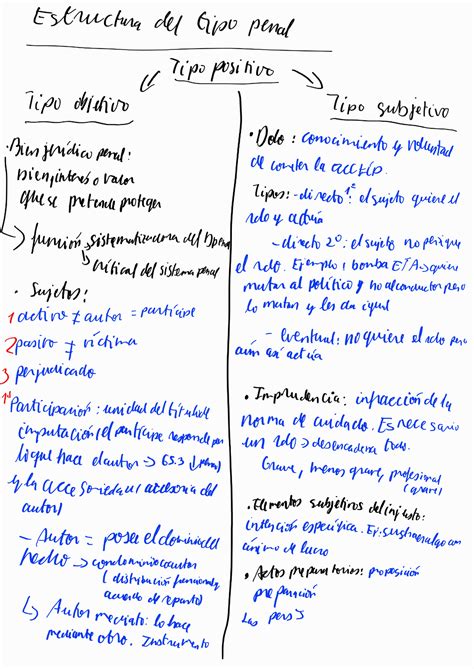 Estructura del tipo penal
Tipo positivo
Tipo objetivo
• Bien jurídico penal:
bien, interés o valor
que se pretende proteger
función sistematizadora del
crítica del sistema penal
• Sujetos:
1 activo ≠ autor = partícipe
2 pasivo ≠ víctima
3 perjudicado
Participación: unidad del título de
imputación (el partícipe responde por
lo que hace el autor → 65.3
y la accesoriedad (accesoria del
autor)
- Autor = posee el dominio del
hecho → condominio coautor
(distribución funcional y
acuerdo de reparto)
↳ Autor mediato: lo hace
mediante otro. Instrumento
Tipo subjetivo
• Dolo: conocimiento y voluntad
de cometer la acción.
Tipos: - directo 1º: el sujeto quiere el
rdo y actúa
- directo 2º: el sujeto no persigue
el rdo. Ejemplo: bomba ETA → quiere
matar al político y no al conductor pero
lo matan y les da igual
- Eventual: no quiere el rdo pero
aún así actúa
• Imprudencia: infracción de la
norma de cuidado. Es necesario
un rdo → desencadena todo.
Grave, menos grave, profesional
(grave)
• Elementos subjetivos del injusto:
intención específica. Ej: sustraer algo con
ánimo de lucro
• Actos preparatorios: proposición
Las